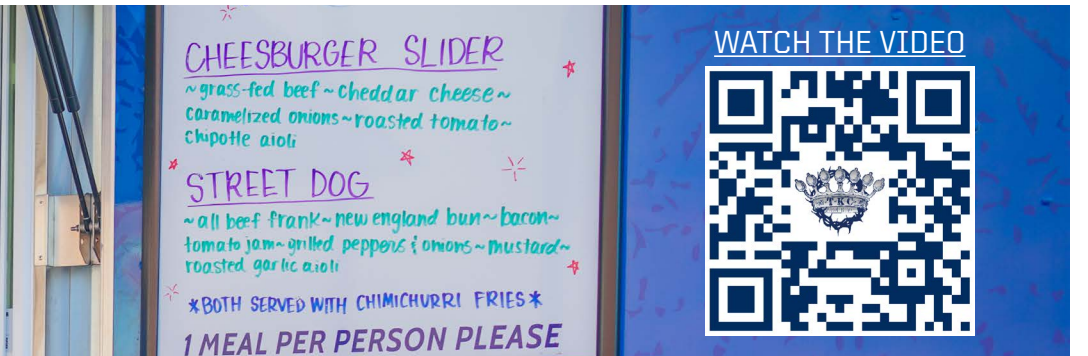 CHEESBURGER SLIDER
~grass-fed beef~cheddar cheese~
caramelized onions~roasted tomato~
chipotle aioli
STREET DOG
~all beef frank~new england bun~bacon~
tomato jam~grilled peppers & onions~mustard~
roasted garlic aioli
*BOTH SERVED WITH CHIMICHURRI FRIES*
1 MEAL PER PERSON PLEASE
WATCH THE VIDEO
TKC